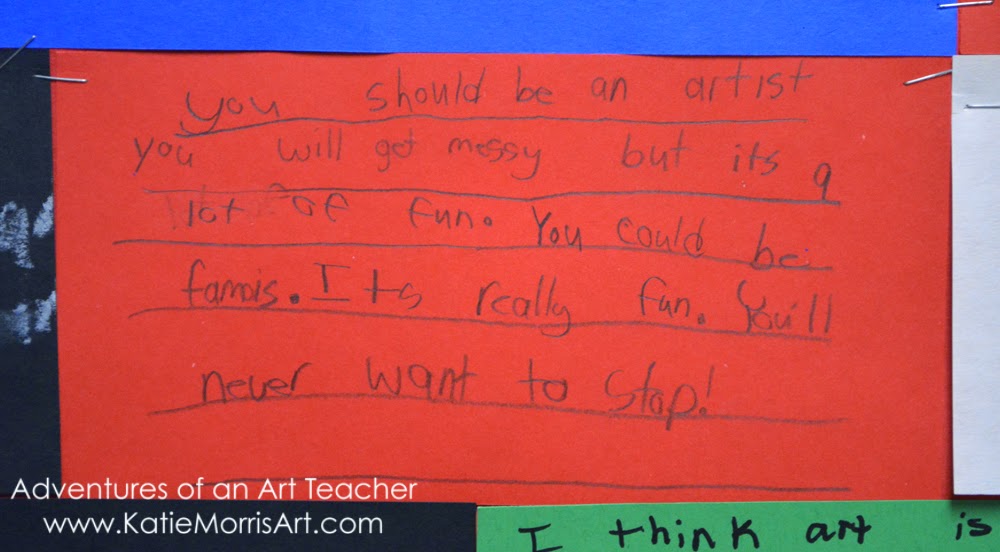 you should be an artist
you will get messy but its a
lot of fun. You could be
famois. Its really fun. You'll
never want to stop!
Adventures of an Art Teacher
www.KatieMorrisArt.com
I think art is